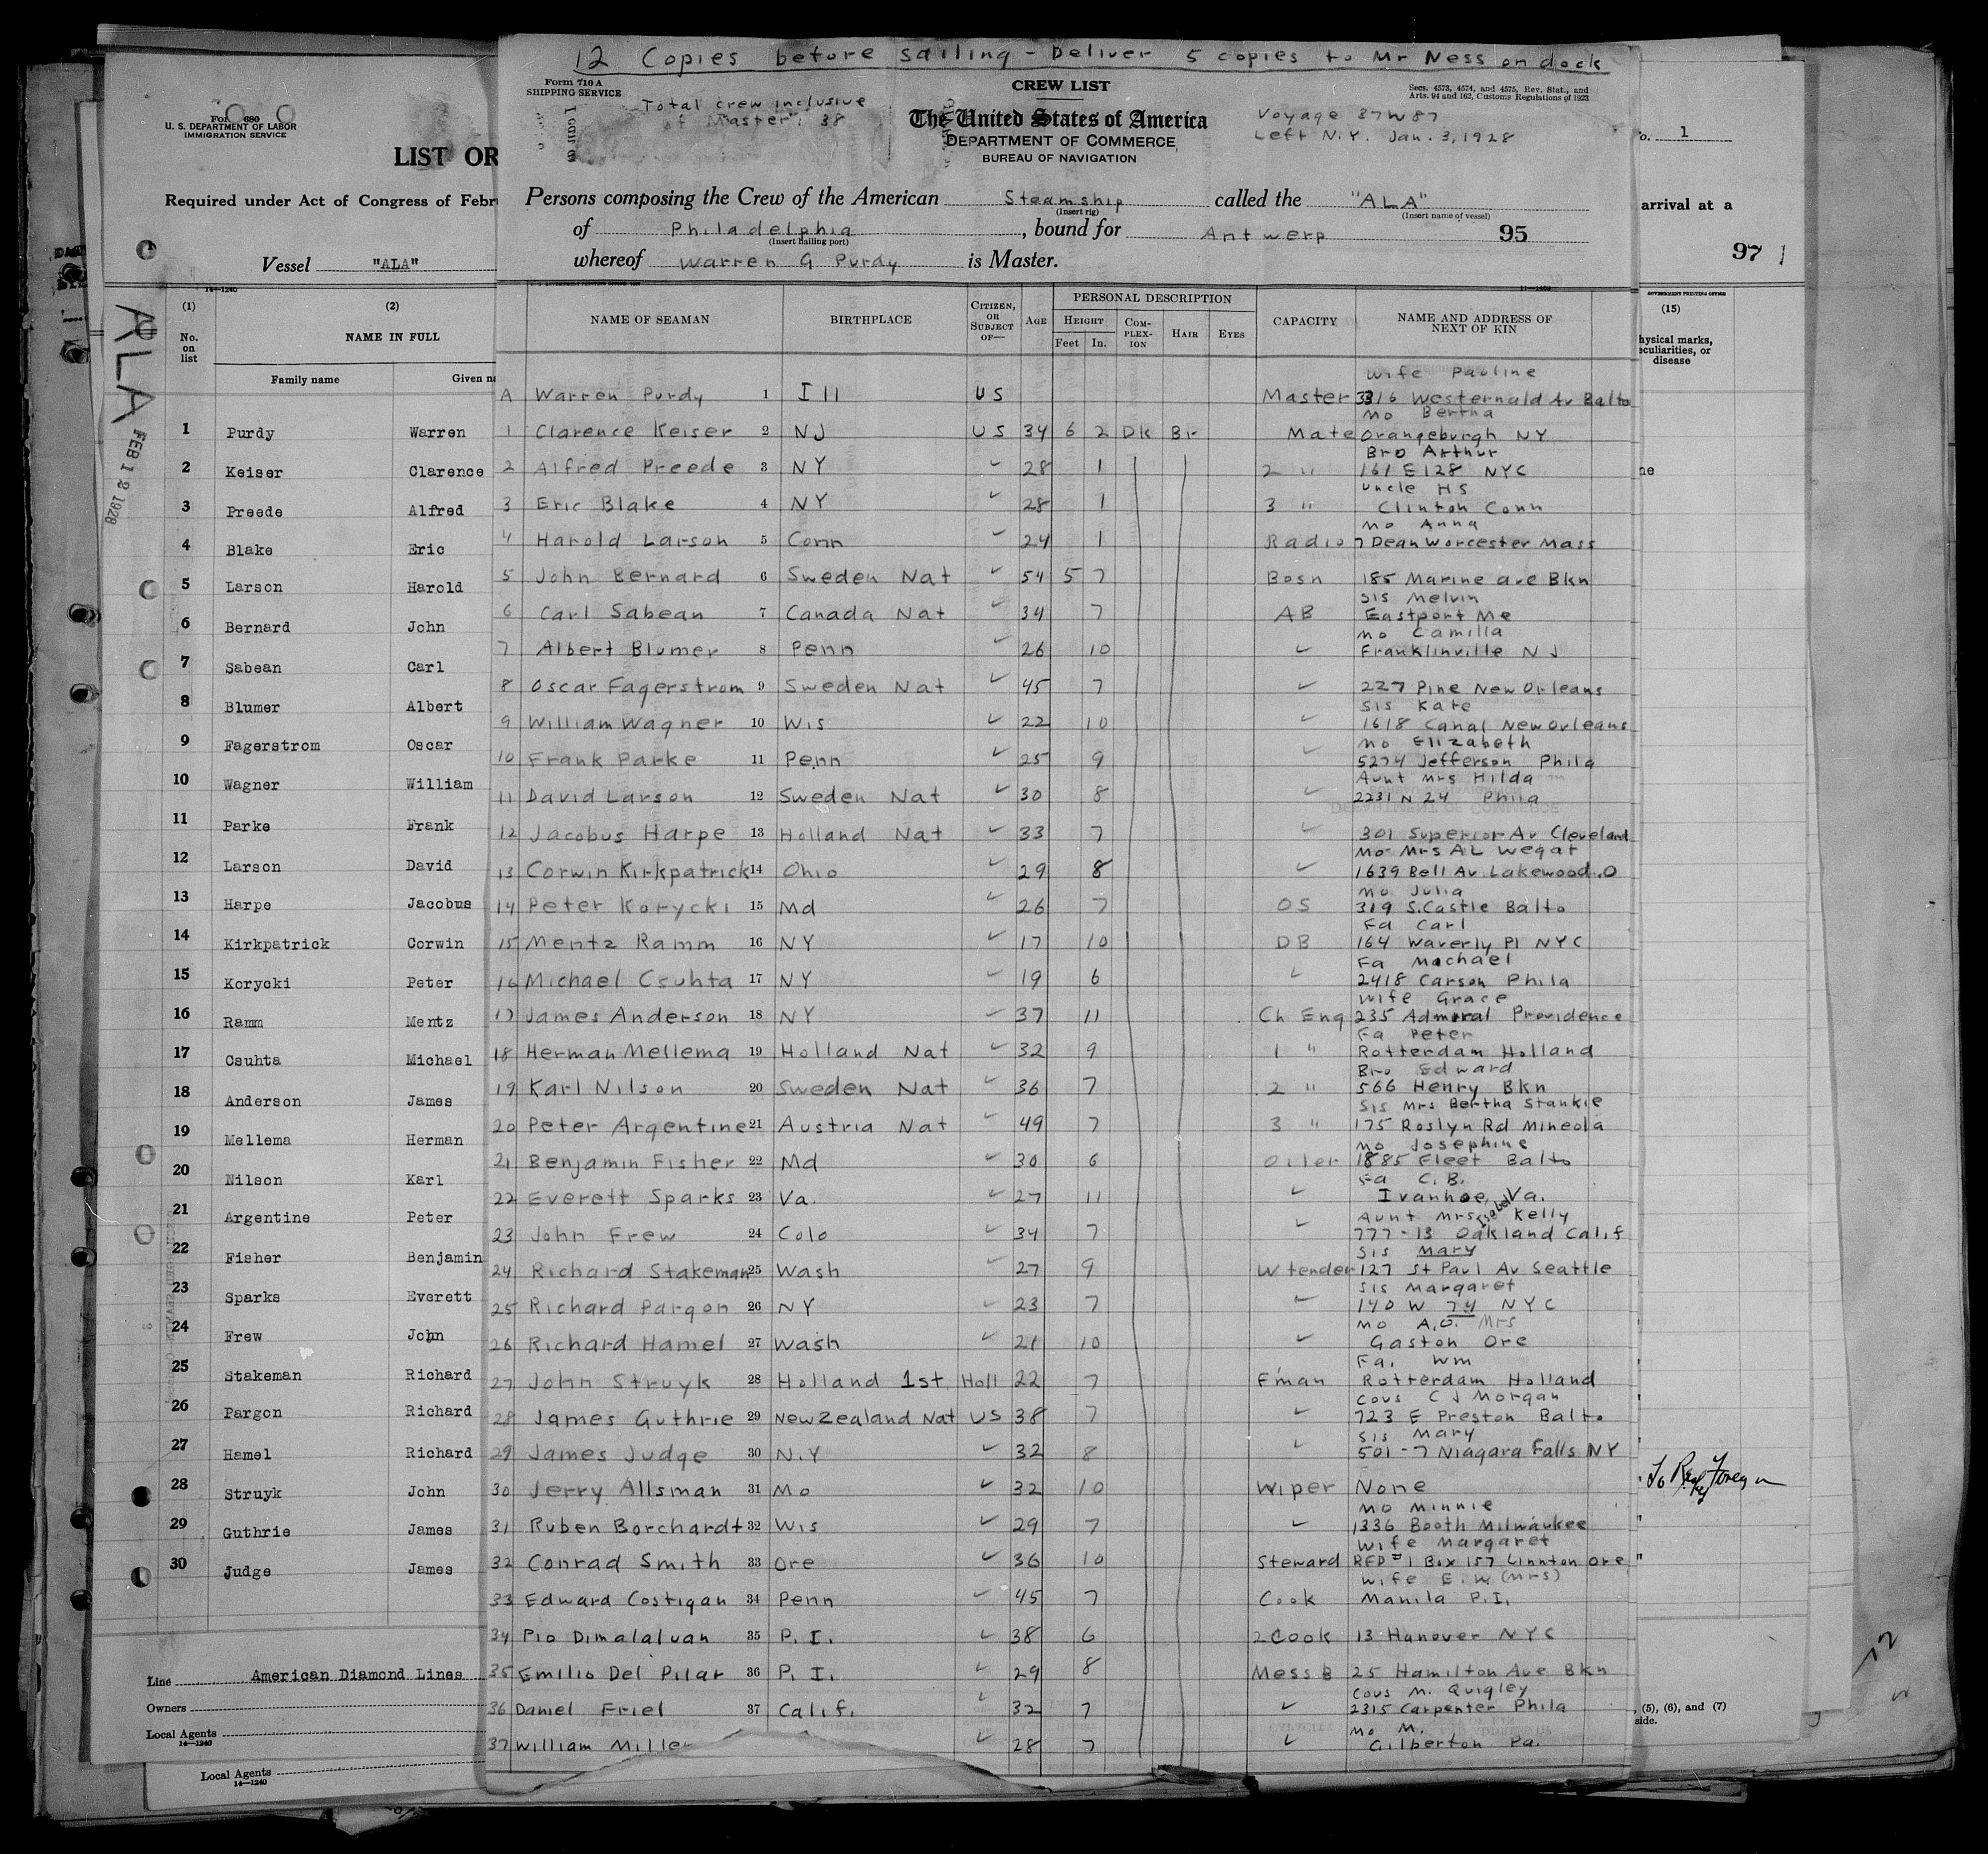 12 Copies before sailing - Deliver 5 copies to Mr Ness on dock
Form 710 A
SHIPPING SERVICE
Total crew inclusive
of Master: 38
CREW LIST
The United States of America
DEPARTMENT OF COMMERCE
BUREAU OF NAVIGATION
Secs. 4573, 4574, and 4575, Rev. Stat., and
Arts. 94 and 162, Customs Regulations of 1923
Voyage 37W87
Left N.Y. Jan. 3, 1928
Persons composing the Crew of the American Steamship called the "ALA"
(Insert rig) (Insert name of vessel)
of Philadelphia, bound for Antwerp 95
(Insert hailing port)
whereof Warren G Purdy is Master.
NAME OF SEAMAN BIRTHPLACE CITIZEN, OR SUBJECT OF— AGE PERSONAL DESCRIPTION CAPACITY NAME AND ADDRESS OF NEXT OF KIN
HEIGHT COMPLEXION HAIR EYES
Feet In.
Wife Pauline
A Warren Purdy 1 Ill US Master 3316 Westernald Av Balto
Mo Bertha
1 Clarence Keiser 2 NJ US 34 6 2 DK Br Mate Orangeburgh NY
Bro Arthur
2 Alfred Preede 3 NY ✓ 28 1 2 " 161 E 128 NYC
Uncle HS
3 Eric Blake 4 NY ✓ 28 1 3 " Clinton Conn
Mo Anna
4 Harold Larson 5 Conn ✓ 24 1 Radio 7 Dean Worcester Mass
5 John Bernard 6 Sweden Nat ✓ 54 5 7 Bosn 185 Marine ave Bkn
Sis Melvin
6 Carl Sabean 7 Canada Nat ✓ 34 7 AB Eastport Me
Mo Camilla
7 Albert Blumer 8 Penn ✓ 26 10 ✓ Franklinville NJ
8 Oscar Fagerstrom 9 Sweden Nat ✓ 45 7 ✓ 227 Pine New Orleans
Sis Kate
9 William Wagner 10 Wis ✓ 22 10 ✓ 1618 Canal New Orleans
Mo Elizabeth
10 Frank Parke 11 Penn ✓ 25 9 ✓ 5274 Jefferson Phila
Aunt Mrs Hilda
11 David Larson 12 Sweden Nat ✓ 30 8 ✓ 2231 N 24 Phila
12 Jacobus Harpe 13 Holland Nat ✓ 33 7 ✓ 301 Superior Av Cleveland
Mo Mrs AL Wegat
13 Corwin Kirkpatrick 14 Ohio ✓ 29 8 ✓ 1639 Bell Av Lakewood.O
Mo Julia
14 Peter Korycki 15 Md ✓ 26 7 OS 319 S.Castle Balto
Fa Carl
15 Mentz Ramm 16 NY ✓ 17 10 DB 164 Waverly Pl NYC
Fa Machael
16 Michael Csuhta 17 NY ✓ 19 6 ✓ 2418 Carson Phila
Wife Grace
17 James Anderson 18 NY ✓ 37 11 Ch Eng 235 Admiral Providence
Fa Peter
18 Herman Mellema 19 Holland Nat ✓ 32 9 1 " Rotterdam Holland
Bro Edward
19 Karl Nilson 20 Sweden Nat ✓ 36 7 2 " 566 Henry Bkn
Sis Mrs Bertha Stankie
20 Peter Argentine 21 Austria Nat ✓ 49 7 3 " 175 Roslyn Rd Mineola
Mo Josephine
21 Benjamin Fisher 22 Md ✓ 30 6 Oiler 1885 Fleet Balto
Fa C.B.
22 Everett Sparks 23 Va. ✓ 27 11 ✓ Ivanhoe, Va.
Aunt Mrs Isabel Kelly
23 John Frew 24 Colo ✓ 34 7 ✓ 777-13 Oakland Calif
Sis Mary
24 Richard Stakeman 25 Wash ✓ 27 9 W tender 127 St Paul Av Seattle
Sis Margaret
25 Richard Pargon 26 NY ✓ 23 7 ✓ 140 W 74 NYC
Mo A.O. Mrs
26 Richard Hamel 27 Wash ✓ 21 10 ✓ Gaston Ore
Fa. Wm
27 John Struyk 28 Holland 1st Holl 22 7 F'man Rotterdam Holland
Cous C J Morgan
28 James Guthrie 29 New Zealand Nat US 38 7 ✓ 723 E Preston Balto
Sis Mary
29 James Judge 30 N.Y ✓ 32 8 ✓ 501-7 Niagara Falls NY
30 Jerry Allsman 31 Mo ✓ 32 10 Wiper None
Mo Minnie
31 Ruben Borchardt 32 Wis ✓ 29 7 ✓ 1336 Booth Milwaukee
Wife Margaret
32 Conrad Smith 33 Ore ✓ 36 10 Steward RFD #1 Box 157 Linnton Ore
Wife E.W (Mrs)
33 Edward Costigan 34 Penn ✓ 45 7 Cook Manila P.I.
34 Pio Dimalaluan 35 P.I. ✓ 38 6 2 Cook 13 Hanover NYC
35 Emilio Del Pilar 36 P.I. ✓ 29 8 Mess B 25 Hamilton Ave Bkn
Cous M. Quigley
36 Daniel Friel 37 Calif. ✓ 32 7 ✓ 2315 Carpenter Phila
Mo M.
37 William Miller ✓ 28 7 ✓ Gilberton Pa.
Form 680
U. S. DEPARTMENT OF LABOR
IMMIGRATION SERVICE
LIST OR
Required under Act of Congress of Febr
Vessel "ALA"
14—1240
ALA
FEB 12 1928
(1) (2)
No. on list NAME IN FULL
Family name Given na
1 Purdy Warren
2 Keiser Clarence
3 Preede Alfred
4 Blake Eric
5 Larson Harold
6 Bernard John
7 Sabean Carl
8 Blumer Albert
9 Fagerstrom Oscar
10 Wagner William
11 Parke Frank
12 Larson David
13 Harpe Jacobus
14 Kirkpatrick Corwin
15 Korycki Peter
16 Ramm Mentz
17 Csuhta Michael
18 Anderson James
19 Mellema Herman
20 Nilson Karl
21 Argentine Peter
22 Fisher Benjamin
23 Sparks Everett
24 Frew John
25 Stakeman Richard
26 Pargon Richard
27 Hamel Richard
28 Struyk John
29 Guthrie James
30 Judge James
Line American Diamond Lines
Owners
Local Agents
14—1240
Local Agents
14—1240
o. 1
arrival at a
97
GOVERNMENT PRINTING OFFICE
(15)
hysical marks,
eculiarities, or
disease
ne
, (5), (6), and (7)
side.
72